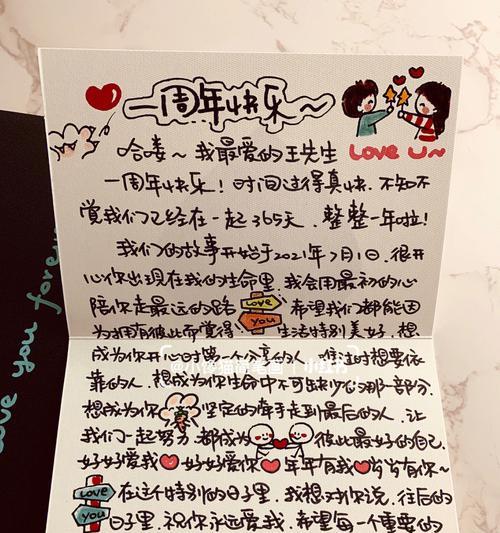 一周年快乐~
Love U~
哈喽~我最爱的王先生
一周年快乐！时间过得真快.不知不
觉我们已经在一起365天.整整一年啦！
我们的故事开始于2021年7月1日.很开
心你出现在我的生命里.我会用最初的心
陪你走最远的路 Love 希望我们都能因
YOU
为拥有彼此而觉得 生活特别美好.想
成为你开心时第一个分享的人.难过时想要依
靠的人.想成为你生命中不可缺少的那一部分.
想成为你 坚定的牵手走到最后的人.让
我们一起努力 都成为 彼此最好的自己.
好好爱我 好好爱你 年年有我 岁岁有你~
Love 在这个特别的日子里.我想对你说.往后的
You 日子里.祝你永远爱我.希望每一个重要的
Love you forever
小红书